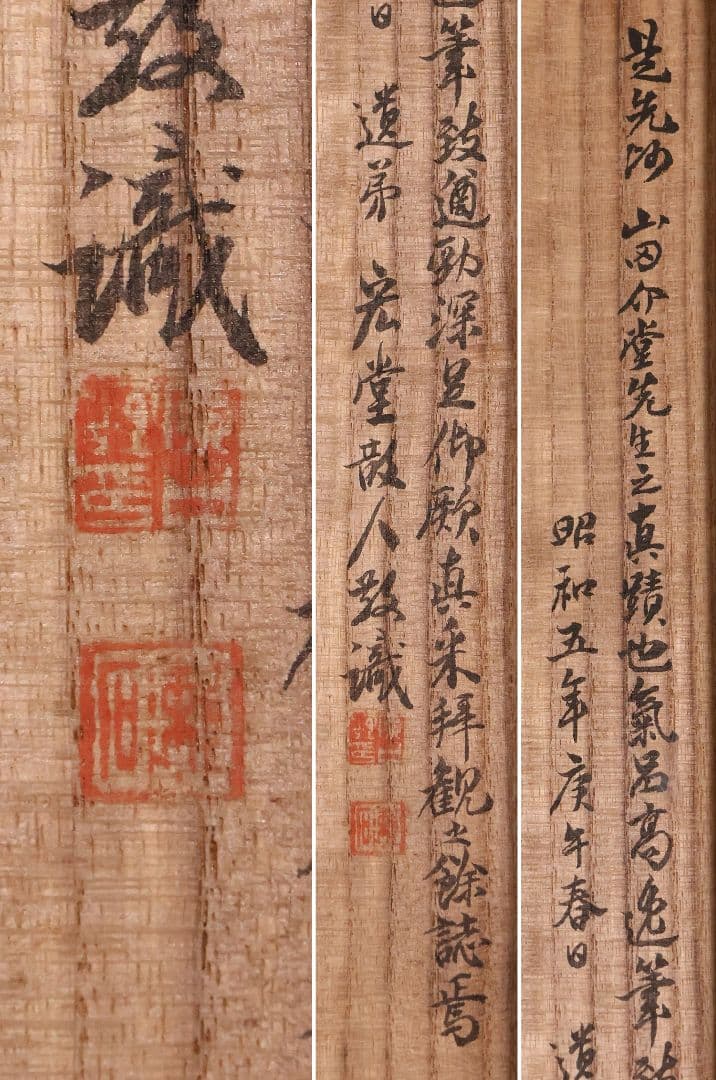 是先師 山田介堂先生之真蹟也氣品高逸筆致
昭和五年庚午春日 遺
筆致遒勁深足仰厥真采拜觀之餘誌焉
日 遺弟 宏堂散人敬識
敬識